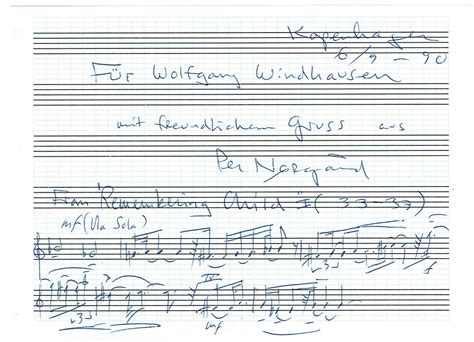 Kopenhagen
6/9 - 90
Für Wolfgang Windhausen
mit freundlichem Gruss aus
Per Nørgård
From "Remembering Child" I (33-37)
mf (Vla Solo)
3
f
IV
3
mf
3